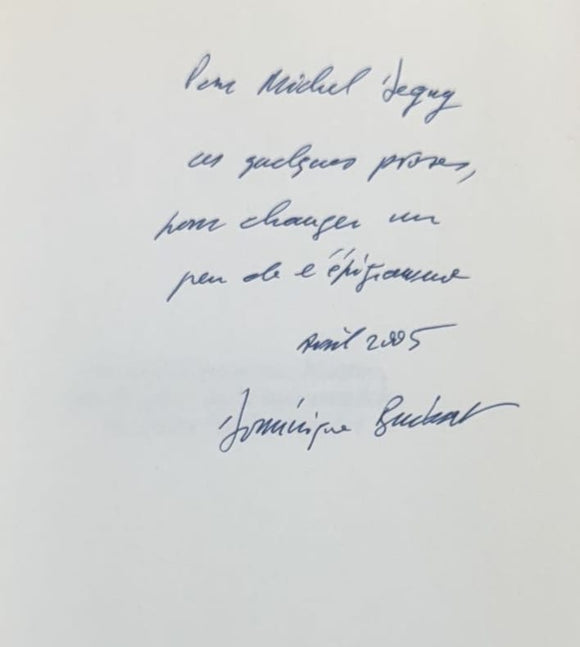 Pour Michel
ces quelques proses,
pour changer un
peu de l'épigramme
avril 2005
Dominique Buisset